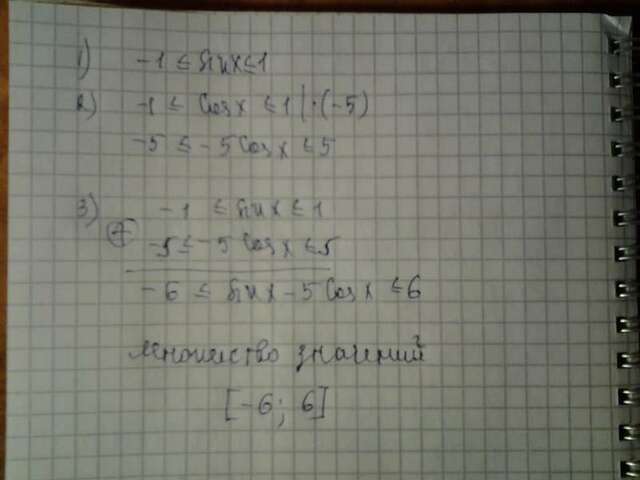 1) -1 ≤ sin x ≤ 1
2) -1 ≤ cos x ≤ 1 | ·(-5)
-5 ≤ -5 cos x ≤ 5
3) -1 ≤ sin x ≤ 1
+ -5 ≤ -5 cos x ≤ 5
-6 ≤ sin x - 5 cos x ≤ 6
множество значений
[-6; 6]